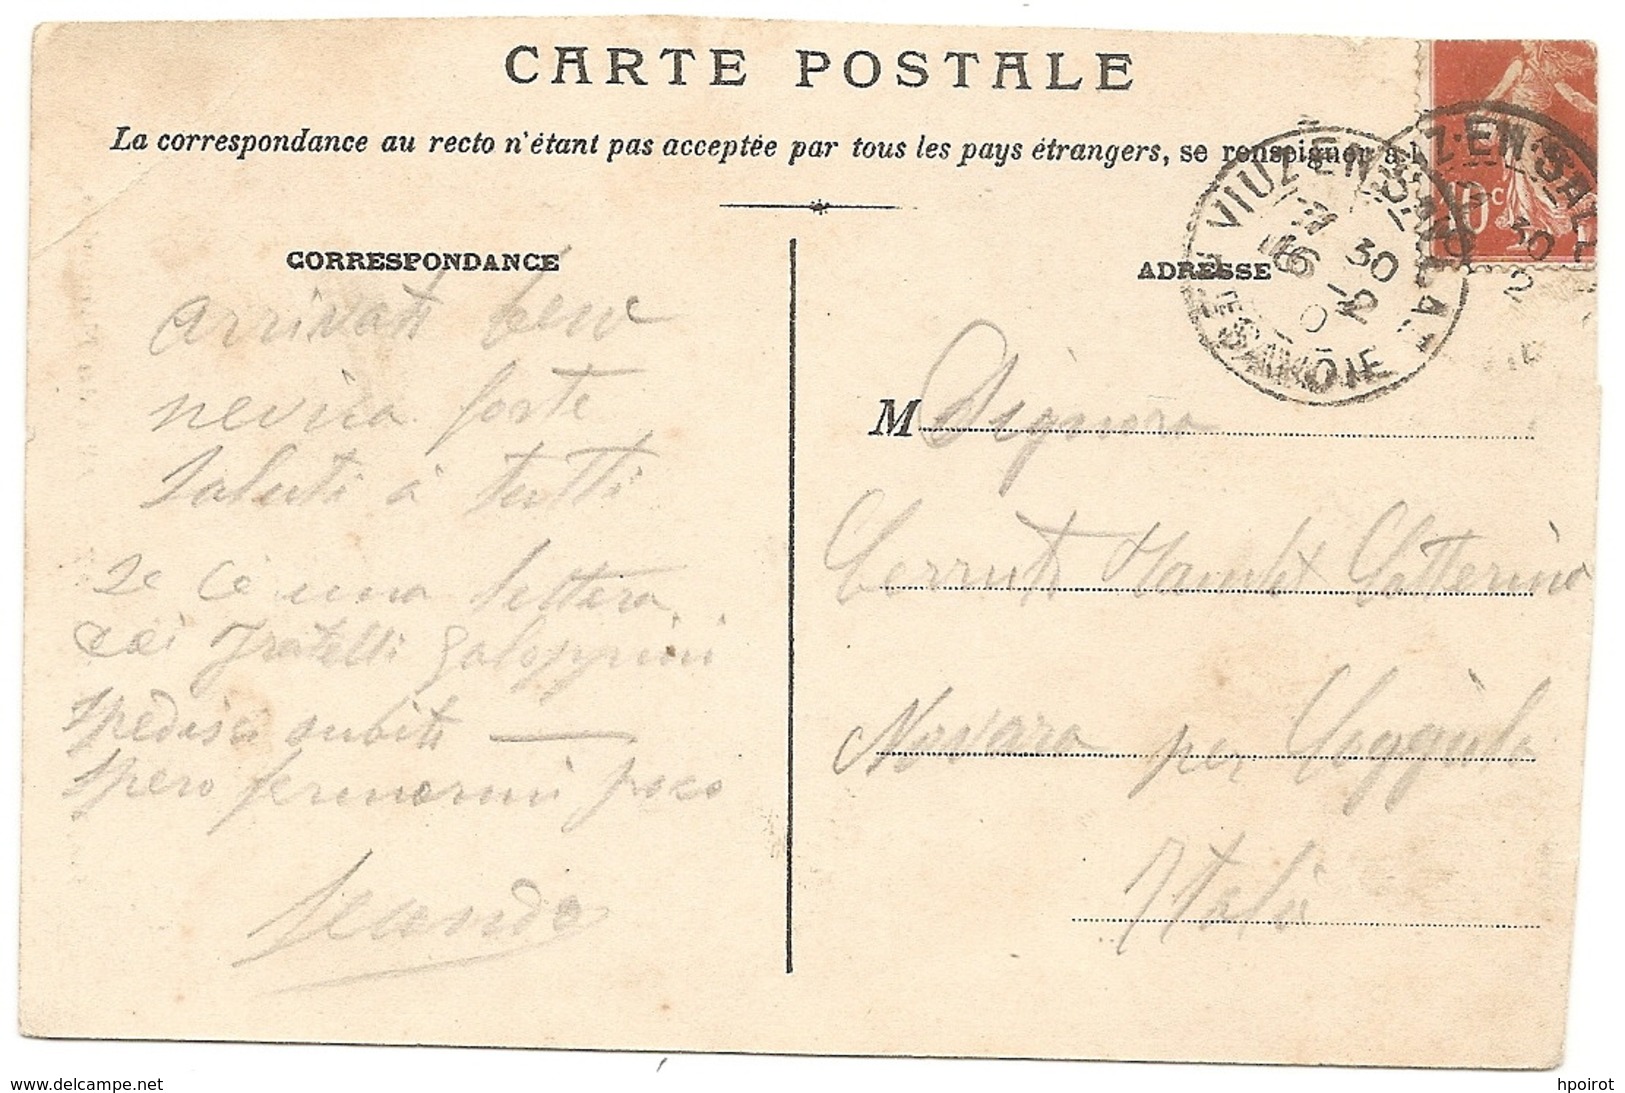 CARTE POSTALE
La correspondance au recto n'étant pas acceptée par tous les pays étrangers, se renseigner à l
CORRESPONDANCE
arrivati bene
nevica forte
Saluti à tutti
Se c'è una lettera
dei Fratelli Galoppini
spedisci subito —
spero fermarmi poco
Secondo
ADRESSE
VIUZ-EN-SALLAZ
30
12
Hte SAVOIE
VIUZ-EN-SALL
30
12
10c
M Signora
Cerruti Catterina
Novara per Coggiola
Italia
www.delcampe.net
hpoirot